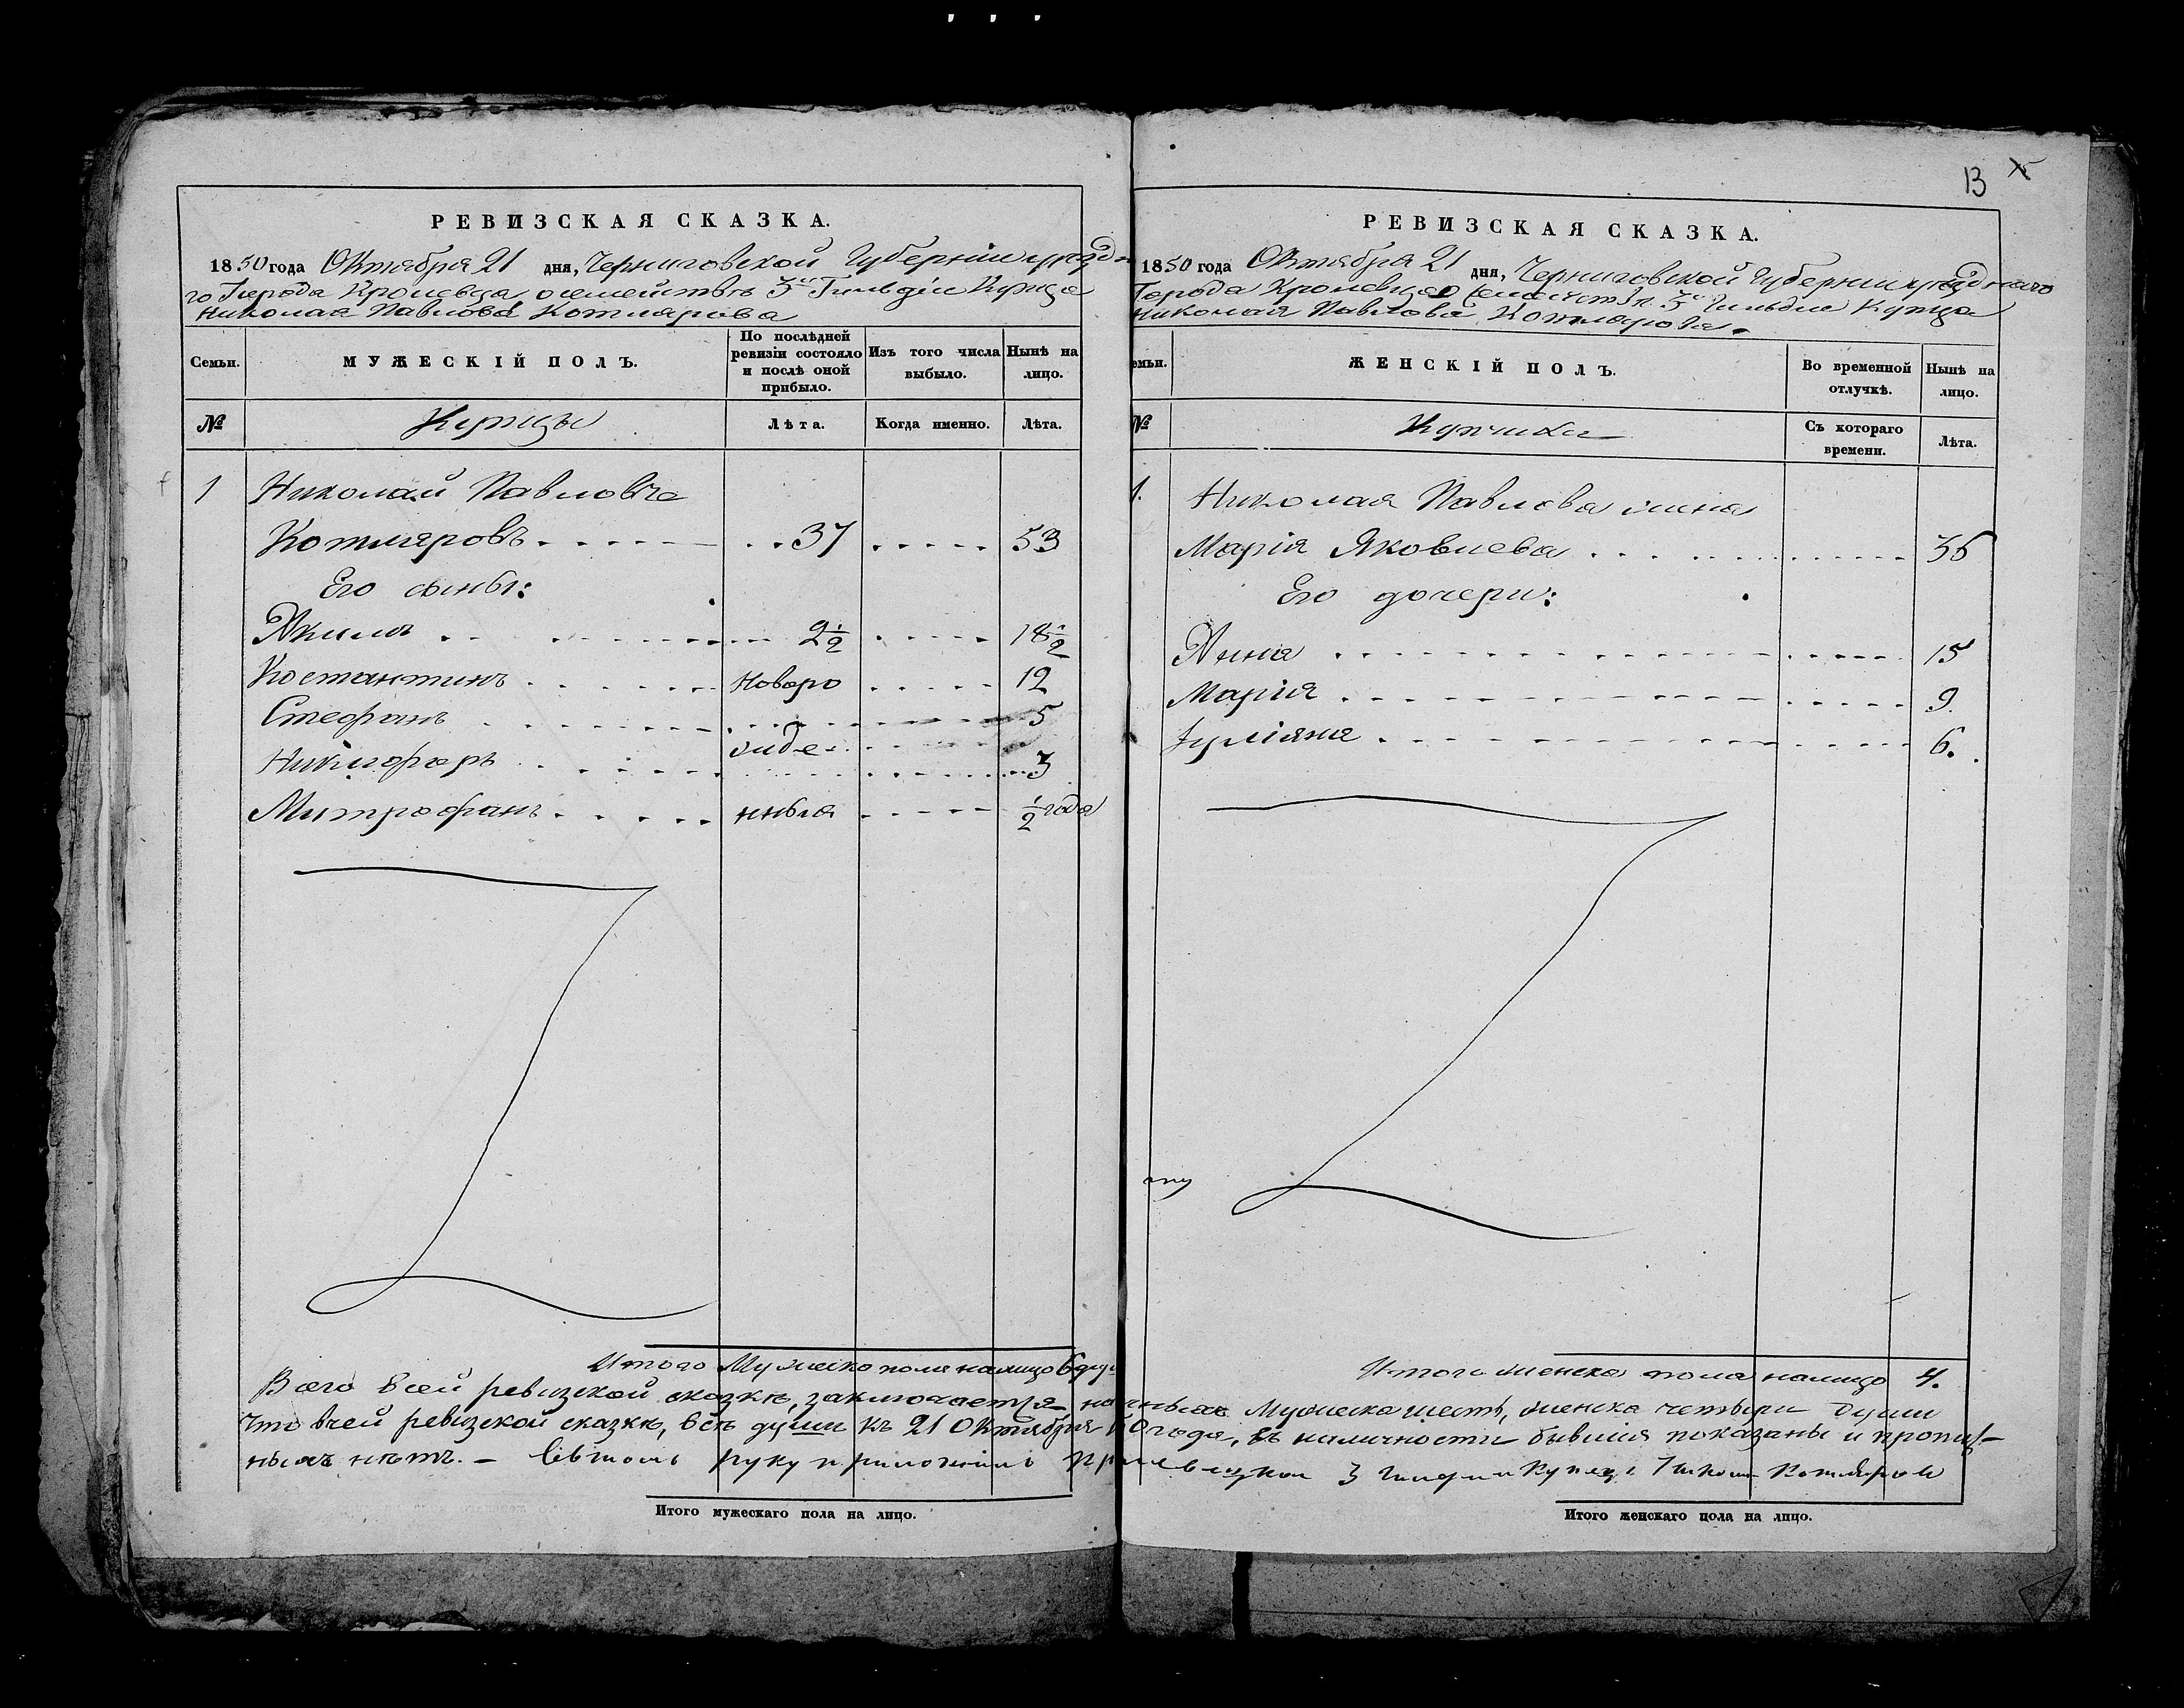 13
РЕВИЗСКАЯ СКАЗКА.
1850 года Октября 21 дня, Черниговской Губерніи уезд-
го Города Кролевца, о семействѣ 3й Гильдіи Купца
Николая Павлова Котлярова
Семьи.
МУЖЕСКІЙ ПОЛЪ.
По послѣдней
ревизіи состояло
и послѣ оной
прибыло.
Изъ того числа
выбыло.
Нынѣ на
лицо.
№
Купцы
Лѣта.
Когда именно.
Лѣта.
1 Николай Павловъ
Котляровъ 37 53
Его сыны:
Якимъ 2½ 18½
Костантинъ новоро 12
Стефанъ 5
жде
Никифоръ 3
Митрофанъ нныя ½ года
Итого Мужеска пола налицо 6 душ
РЕВИЗСКАЯ СКАЗКА.
1850 года Октября 21 дня, Черниговской Губерніи уезднаго
Города Кролевца о семействѣ 3й Гильдіи Купца
Николая Павлова Котлярова.
емьи.
ЖЕНСКІЙ ПОЛЪ.
Во временной
отлучкѣ.
Нынѣ на
лицо.
№
Купчихи
Съ котораго
времени.
Лѣта.
1. Николая Павлова жена
Марія Яковлева 36
Его дочери:
Анна 15
Марія 9.
Іуліяна 6.
Итого женска пола налицо 4.
Всего в сей ревизской сказкѣ, заключается наличныхъ Мужеска шесть, женска четыри души
Что в сей ревизской сказкѣ, всѣ души къ 21 Октября 50 года, въ наличности бывшія показаны и пропущ-
ныхъ нѣтъ. – В томъ руку приложилъ Кролевецкой 3 гилдии Купецъ Николай Котляровъ
Итого мужескаго пола на лицо.
Итого женскаго пола на лицо.